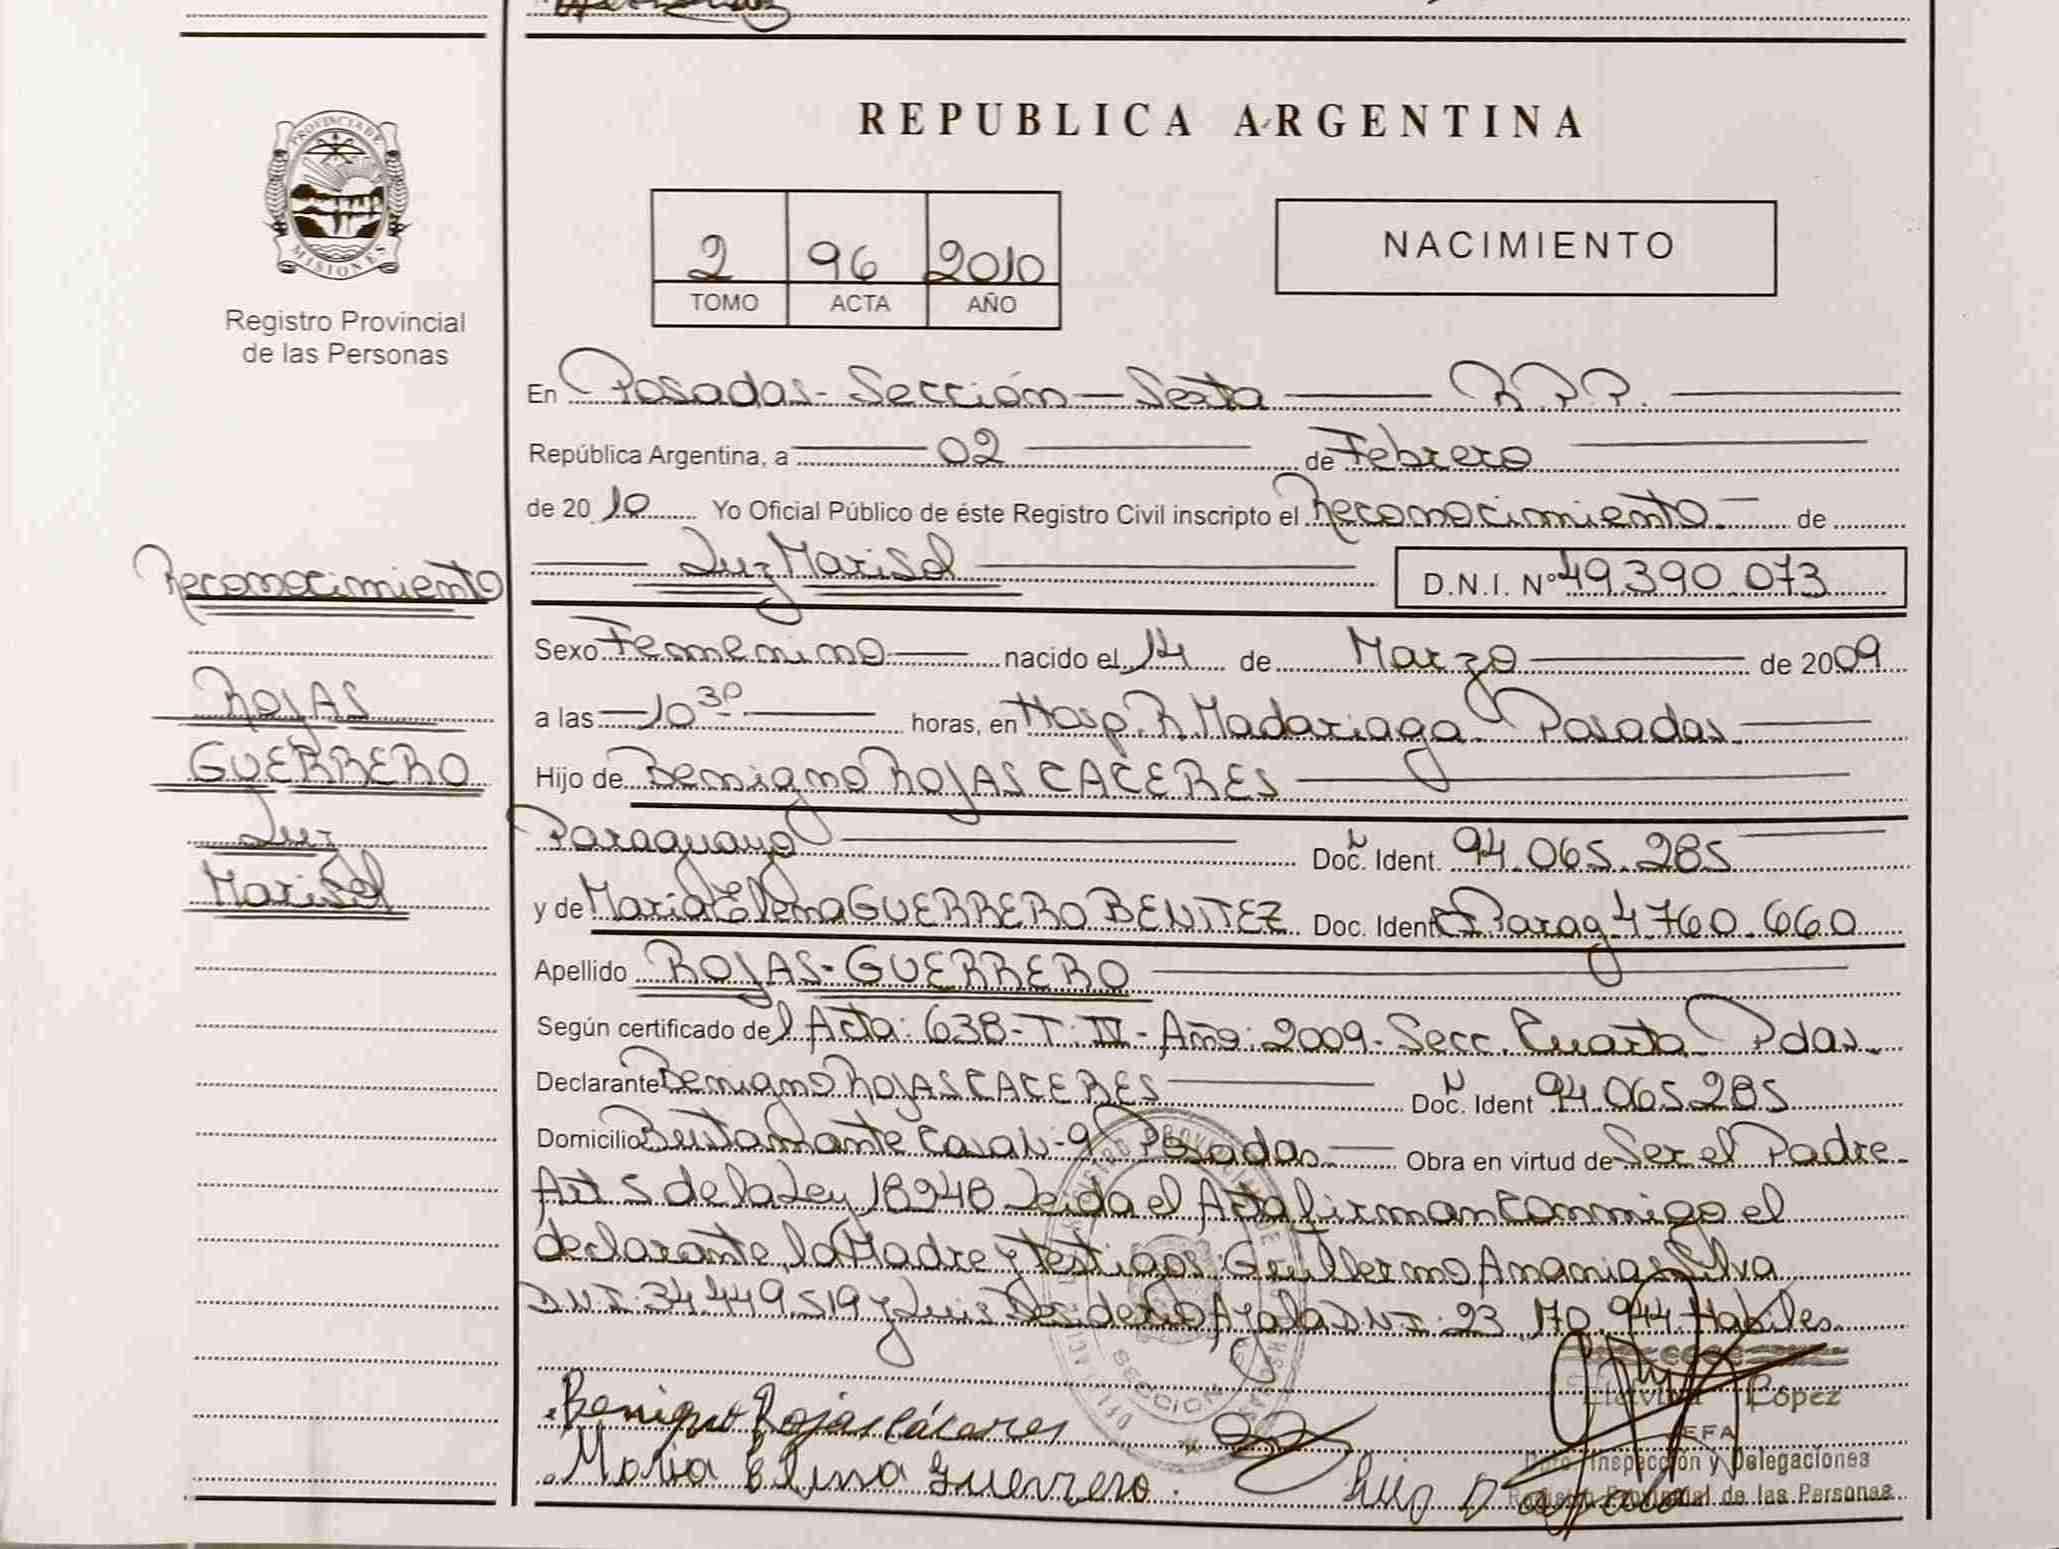 REPUBLICA ARGENTINA
PROVINCIA DE
MISIONES
Registro Provincial
de las Personas
2 96 2010
TOMO ACTA AÑO
NACIMIENTO
En Posadas - Sección - Sexta R.P.P.
República Argentina, a 02 de Febrero
de 2010 Yo Oficial Público de éste Registro Civil inscripto el Reconocimiento de
Luz Marisol D.N.I. Nº 49.390.073
Reconocimiento
ROJAS
GUERRERO
Luz
Marisol
Sexo Femenino nacido el 14 de Marzo de 2009
a las 10 30 horas, en Hosp. R. Madariaga Posadas
Hijo de Benigno ROJAS CACERES
Paraguayo Doc. Ident. 94.065.285
y de Maria Elena GUERRERO BENITEZ Doc. Ident CI Parag 4.760.660
Apellido ROJAS-GUERRERO
Según certificado del Acta: 638-T: IV - Año: 2009 - Secc. Cuarta Pdas.
Declarante Benigno ROJAS CACERES Doc. Ident 94.065.285
Domicilio Bustamante Casa 9 Posadas Obra en virtud de Ser el Padre
Art 5 de la Ley 18248 Leida el Acta firman conmigo el
declarante, la Madre y testigos: Guillermo Ananias Silva
DNI: 34.449.519 y Luis Desiderio Ayala DNI: 23.170.944 Habiles
Benigno Rojas Cáceres
Maria Elena Guerrero
López
Inspección y Delegaciones
Registro Provincial de las Personas